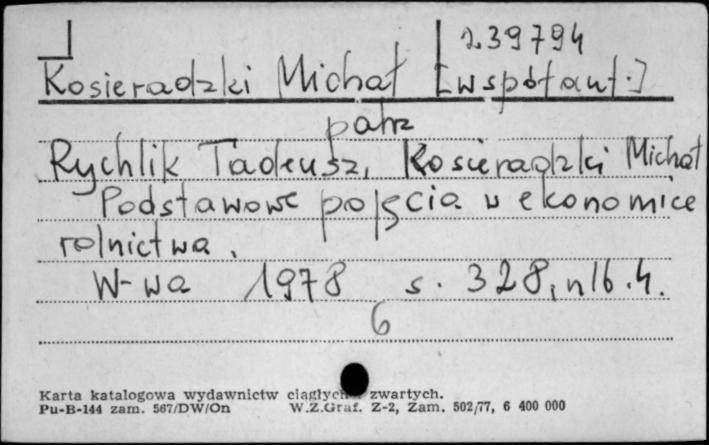 239794
Kosieradzki Michał [współaut.]
patrz
Rychlik Tadeusz, Kosieradzki Michał
Podstawowe pojęcia w ekonomice
rolnictwa.
W-wa 1978 s. 328, nlb. 4.
6
Karta katalogowa wydawnictw ciągłych zwartych.
Pu-B-144 zam. 567/DW/On W.Z.Graf. Z-2, Zam. 502/77, 6 400 000